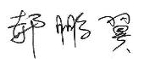 郝鹏翼